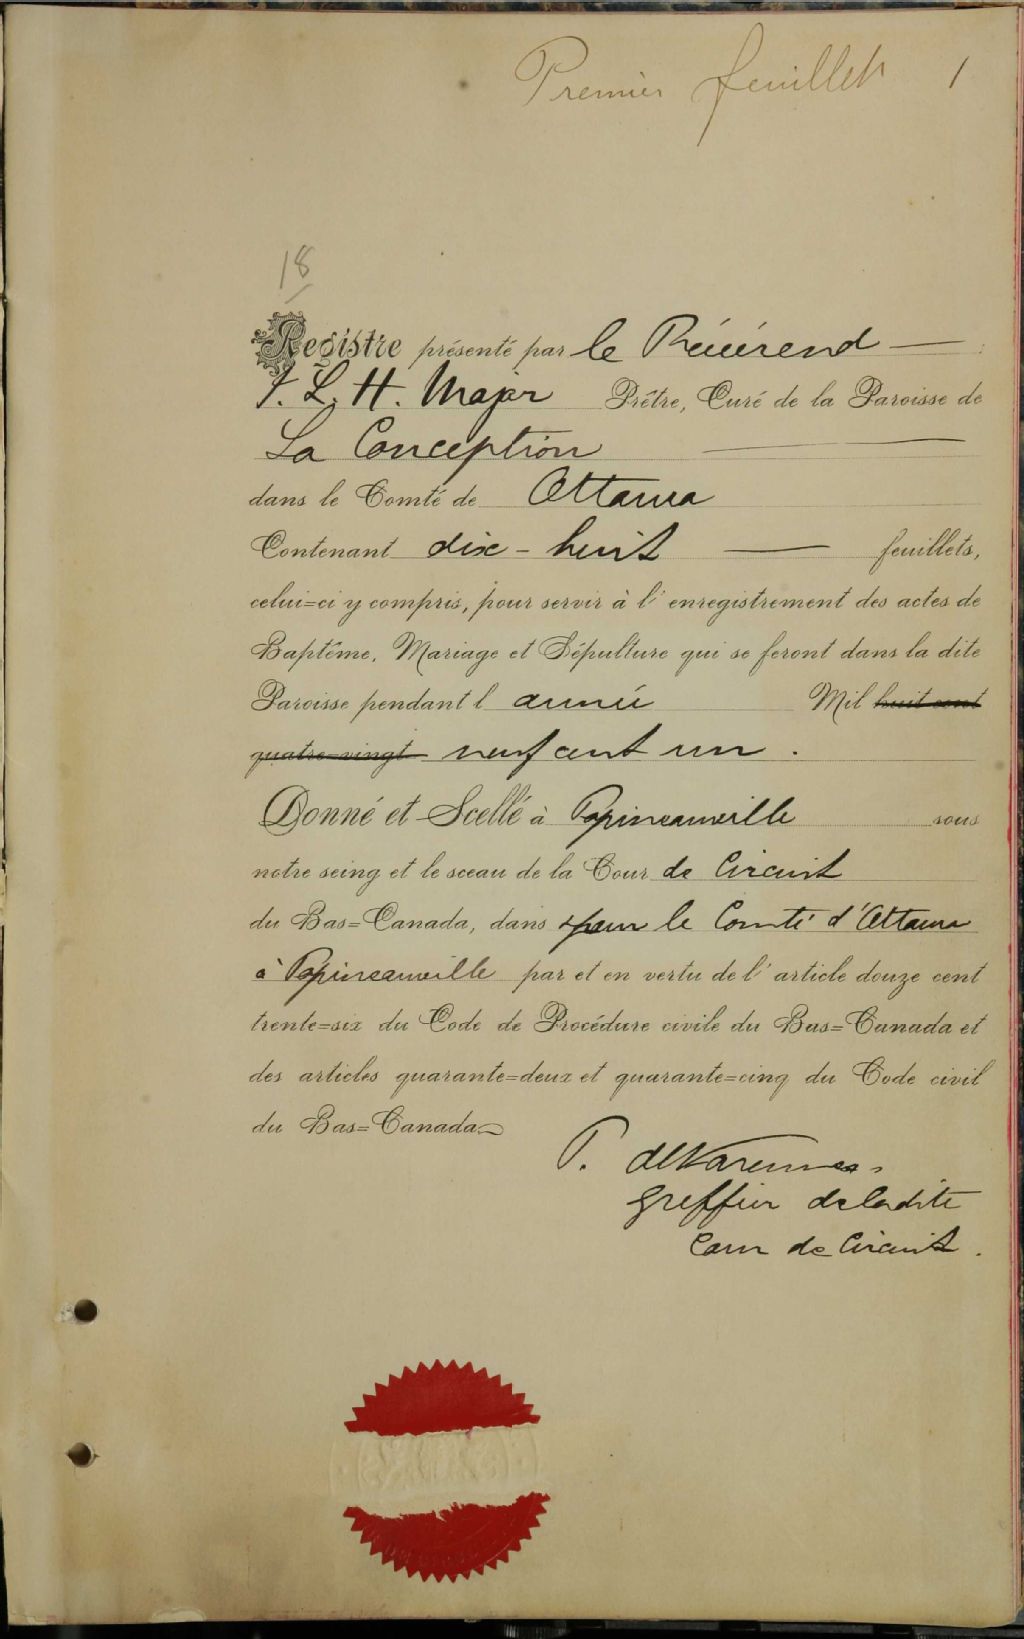 Premier feuillet 1
18
Registre présenté par le Révérend —
J. L. H. Major Prêtre, Curé de la Paroisse de
La Conception —
dans le Comté de Ottawa
Contenant dix-huit — feuillets,
celui=ci y compris, pour servir à l'enregistrement des actes de
Baptême, Mariage et Sépulture qui se feront dans la dite
Paroisse pendant l année Mil huit cent
quatre=vingt neuf cent un.
Donné et Scellé à Papineauville sous
notre seing et le sceau de la Cour de Circuit
du Bas=Canada, dans & pour le Comté d'Ottawa
à Papineauville par et en vertu de l'article douze cent
trente=six du Code de Procédure civile du Bas=Canada et
des articles quarante=deux et quarante=cinq du Code civil
du Bas=Canada
P. deVarennes
Greffier de ladite
Cour de Circuit.